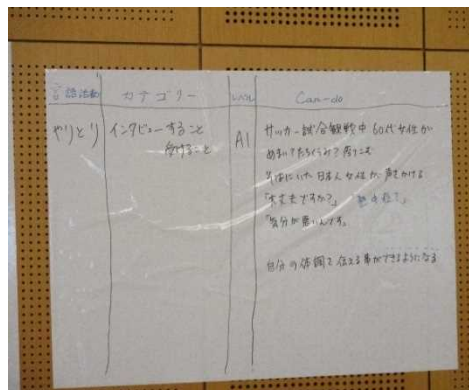 言語活動 カテゴリー レベル Can-do
やりとり インタビューすること
受けること
A1
サッカー試合観戦中 60代女性が
めまいでたちくらみで座りこむ
そばにいた日本人女性が、声をかける
「大丈夫ですか?」 熱中症?
「気分が悪いんです。
自分の体調を伝える事ができるようになる